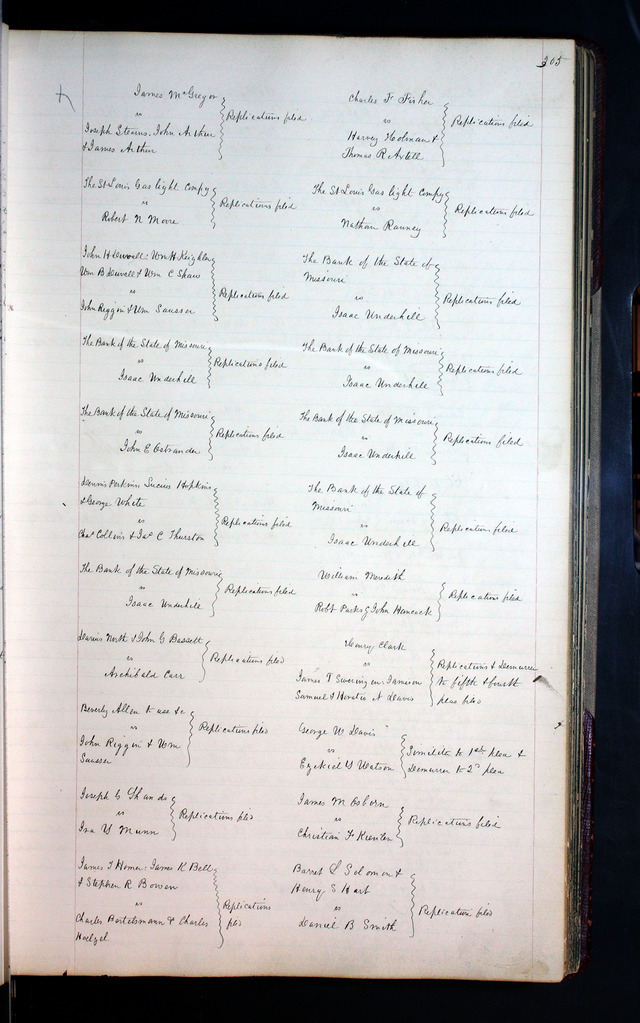 305
James McGregor
vs
Joseph Stearns, John Arthur
& James Arthur
Replications filed
The St Louis Gas light Compy
vs
Robert N Moore
Replications filed
John H Dewall: Wm H Keighler
Wm B Duvall & Wm C Shaw
vs
John Riggin & Wm Sausser
Replications filed
The Bank of the State of Missouri
vs
Isaac Underhill
Replications filed
The Bank of the State of Missouri
vs
John E Ostrander
Replications filed
Dennis Perkins Lucius Hopkins
& George White
vs
Chas Collins & Jas C Thurston
Replications filed
The Bank of the State of Missouri
vs
Isaac Underhill
Replications filed
Darius North & John G Bassett
vs
Archibald Carr
Replications filed
Beverly Allen to use &c
vs
John Riggin & Wm
Sausser
Replications filed
Joseph C Shands
vs
Ira Y Munn
Replications filed
James T Homer: James K Bell
& Stephen R Bowen
vs
Charles Bartelsmann & Charles
Hoelzel
Replications
filed
Charles F Fisher
vs
Harvey Holman &
Thomas R Axtell
Replications filed
The St Louis Gas light Compy
vs
Nathan Ranney
Replications filed
The Bank of the State of
Missouri
vs
Isaac Underhill
Replications filed
The Bank of the State of Missouri
vs
Isaac Underhill
Replications filed
The Bank of the State of Missouri
vs
Isaac Underhill
Replications filed
The Bank of the State of
Missouri
vs
Isaac Underhill
Replications filed
William Meredith
vs
Robt Parks & John Hancock
Replications filed
Henry Clark
vs
James T Swearingen: Jameson
Samuel & Horatio N Davis
Replications & Demurrer
to fifth & fourth
pleas filed
George W Davis
vs
Ezekiel Y Watson
Similite to 1st plea &
Demurrer to 2d plea
James M Osborn
vs
Christian F
Replications filed
Barret S Solomon &
Henry S Hart
vs
Daniel B Smith
Replication filed